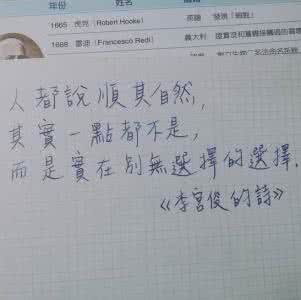 年份 姓名
1665 虎克 (Robert Hooke) 英國 發現「細胞」
1668 雷迪 (Francesco Redi) 義大利
人都說順其自然,
其實一點都不是,
而是實在別無選擇的選擇.
《李宮俊的詩》